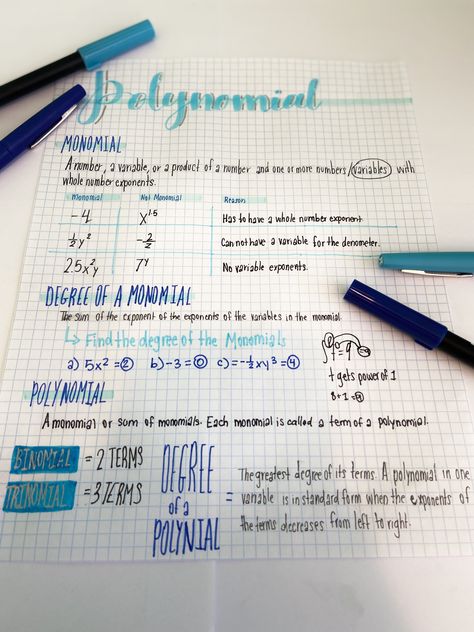 Polynomial
MONOMIAL
A number, a variable, or a product of a number and one or more numbers/variables) with
whole number exponents.
Monomial Not Monomial Reason
-4 x^1.5 Has to have a whole number exponent
½y² Can not have a variable for the denometer.
2.5x²y 7^y No variable exponents.
DEGREE OF A MONOMIAL
The sum of the exponent of the exponents of the variables in the monomial
↳ Find the degree of the Monomials
a) 5x² = 2 b) -3 = 0 c) = -½xy³ = 4
t gets power of 1
8+1=9
POLYNOMIAL
A monomial or sum of monomials. Each monomial is called a term of a polynomial.
BINOMIAL = 2 TERMS
TRINOMIAL = 3 TERMS
DEGREE
of a
POLYNIAL
=
The greatest degree of its terms. A polynomial in one
variable is in standard form when the exponents of
the terms decreases from left to right.